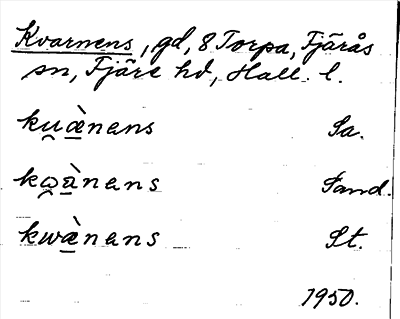 Kvarnens, gd, 8 Torpa, Fjärås
sn, Fjäre hd, Hall. l.
ku̯æ̠̀nens Sa.
kω̯à̠nens Sand.
kwæ̠̀nens St.
1950.